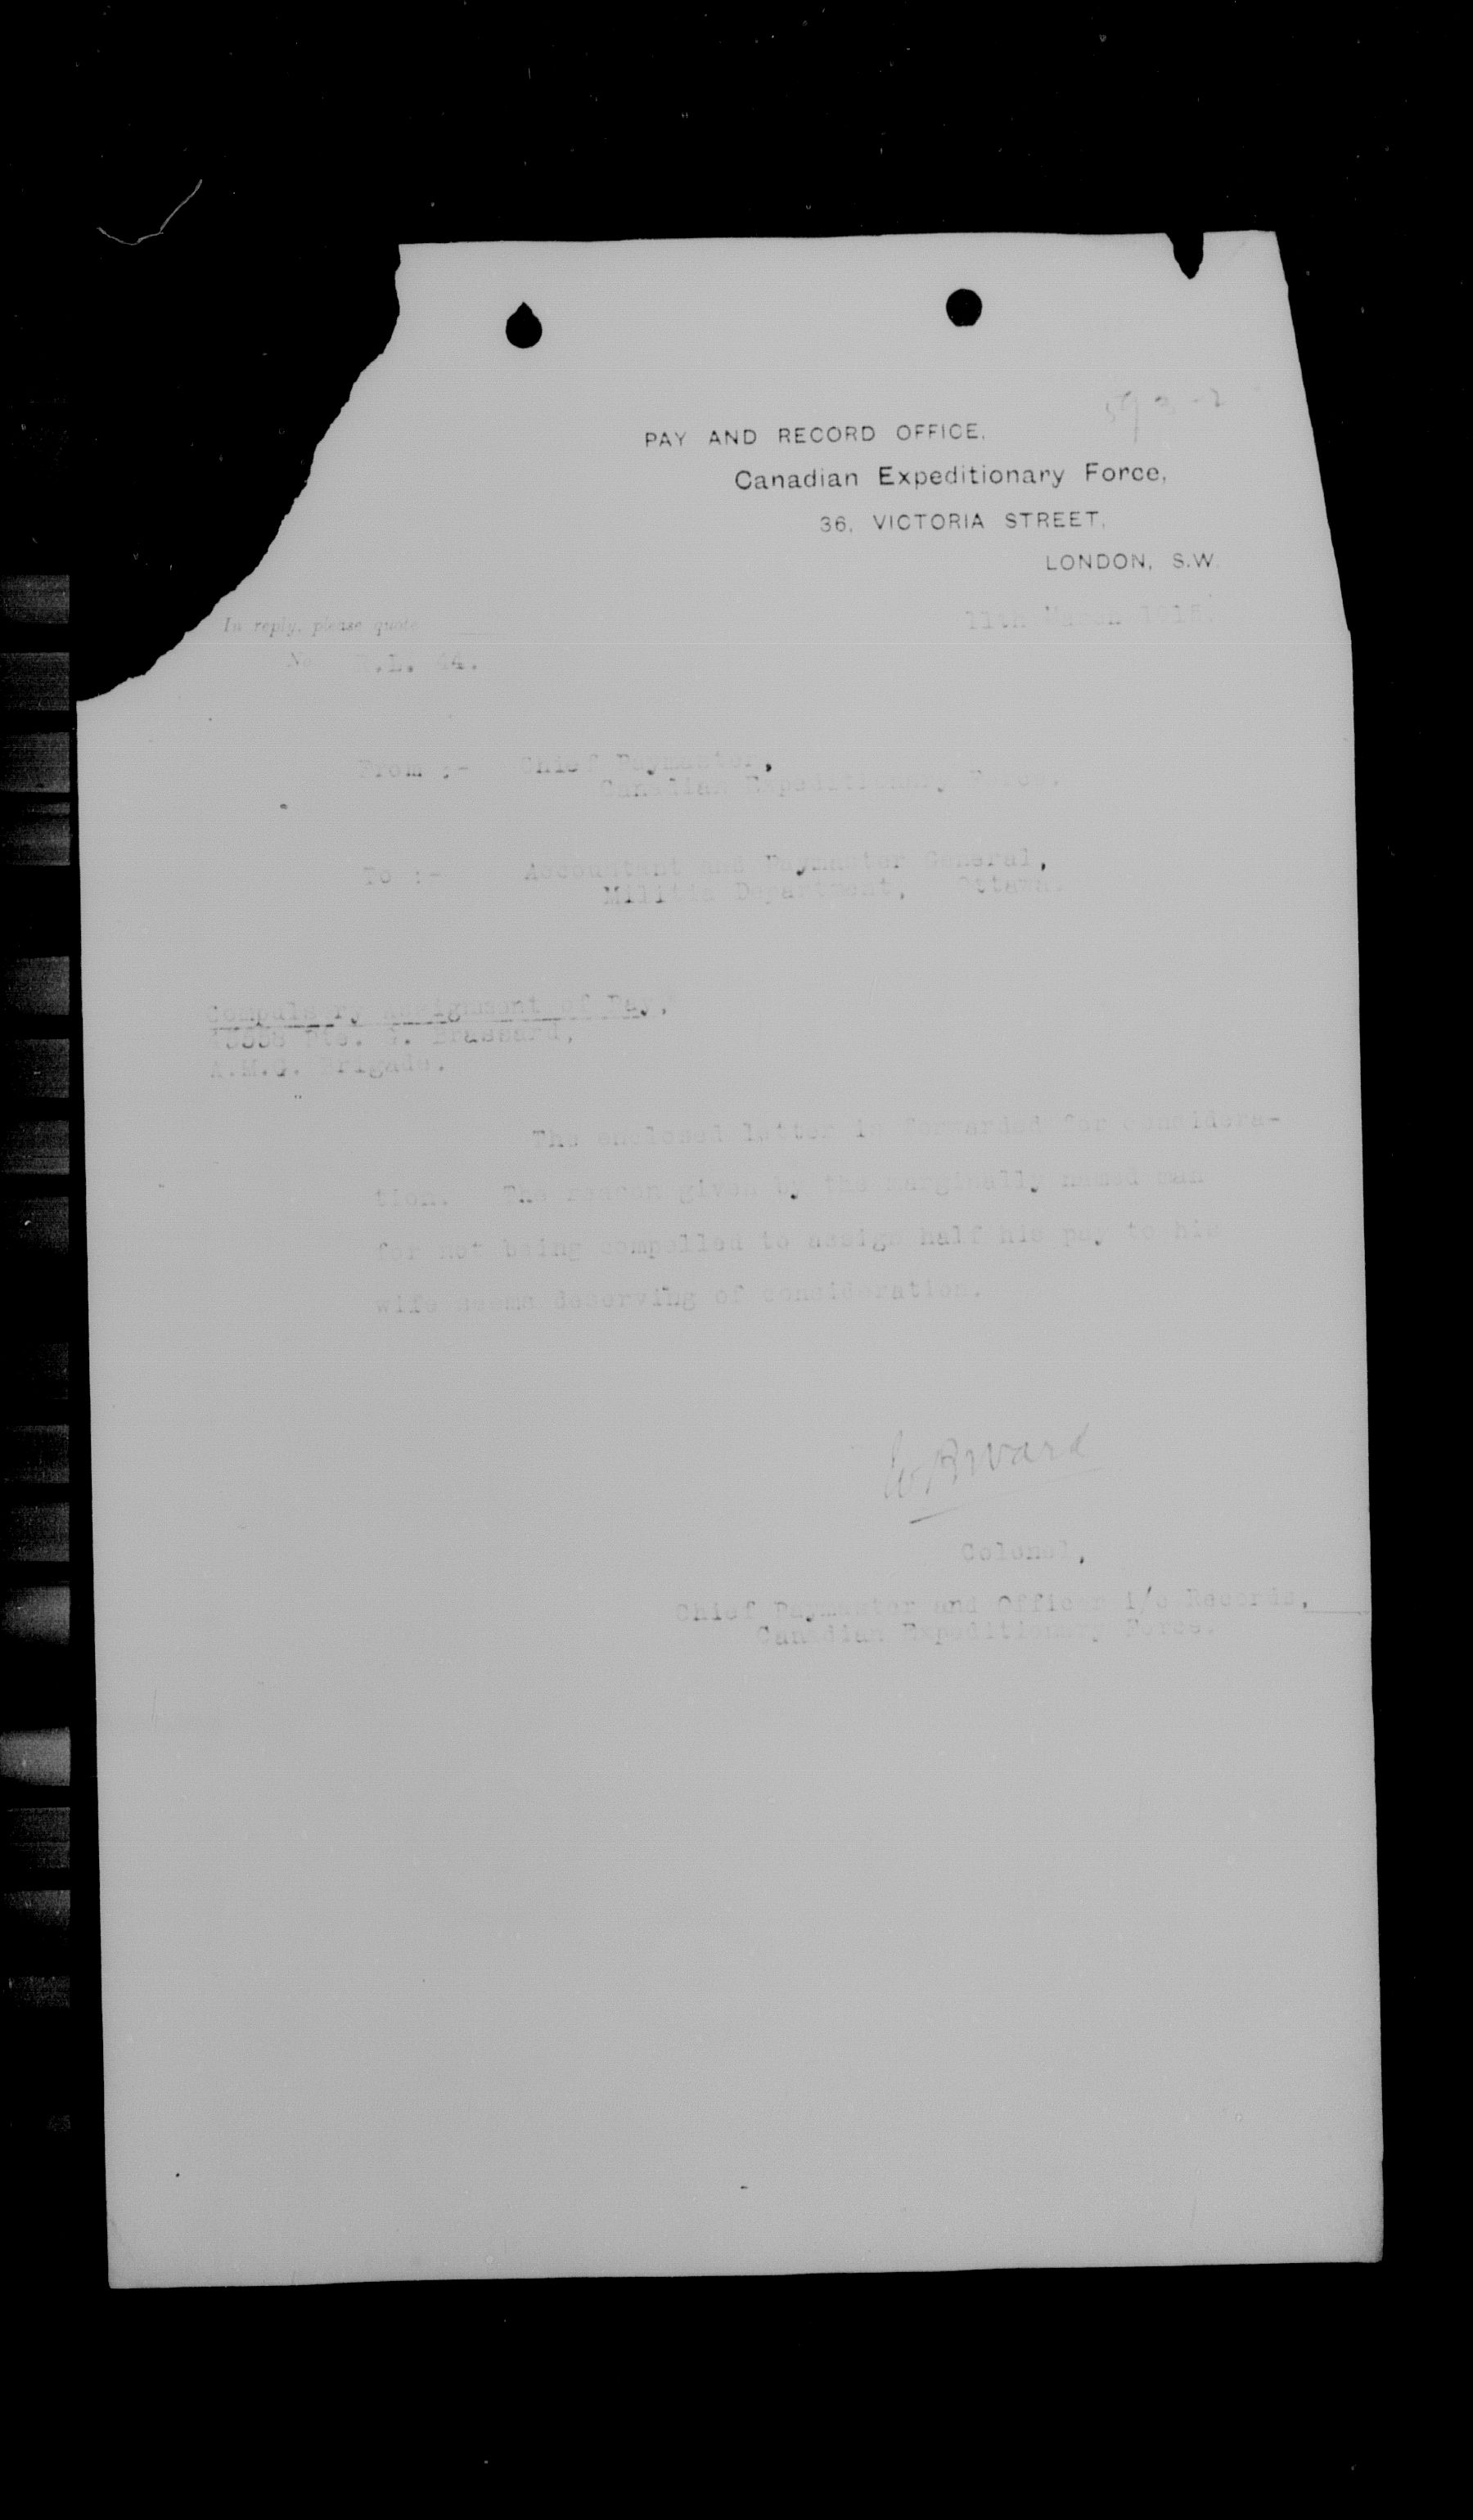 PAY AND RECORD OFFICE,
Canadian Expeditionary Force,
36, VICTORIA STREET,
LONDON, S.W.
11th March 1915.
In reply, please quote
No .L. 44.
From :- Chief Paymaster,
Canadian Expeditionary Force.
To :- Accountant and Paymaster General,
Militia Department, Ottawa.
Compulsory Assignment of Pay.
Pte. Brassard,
Brigade.
The enclosed letter is forwarded for considera-
tion. The reason given by the marginally named man
for not being compelled to assign half his pay to his
wife seems deserving of consideration.
Ward
Colonel,
Chief Paymaster and Officer i/c Records,
Canadian Expeditionary Force.